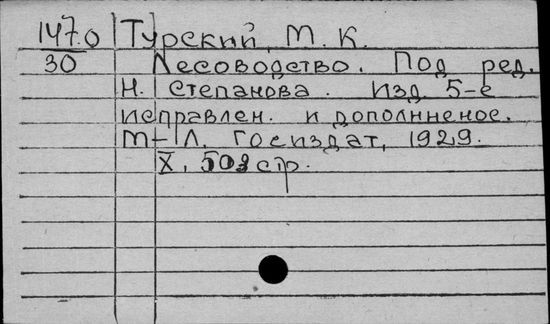 147.0 Турский, М. К.
30 Лесоводство. Под ред.
Н. Степанова. Изд. 5-е
исправлен. и дополнненое.
М-Л. Госиздат, 1929.
X, 503 стр.